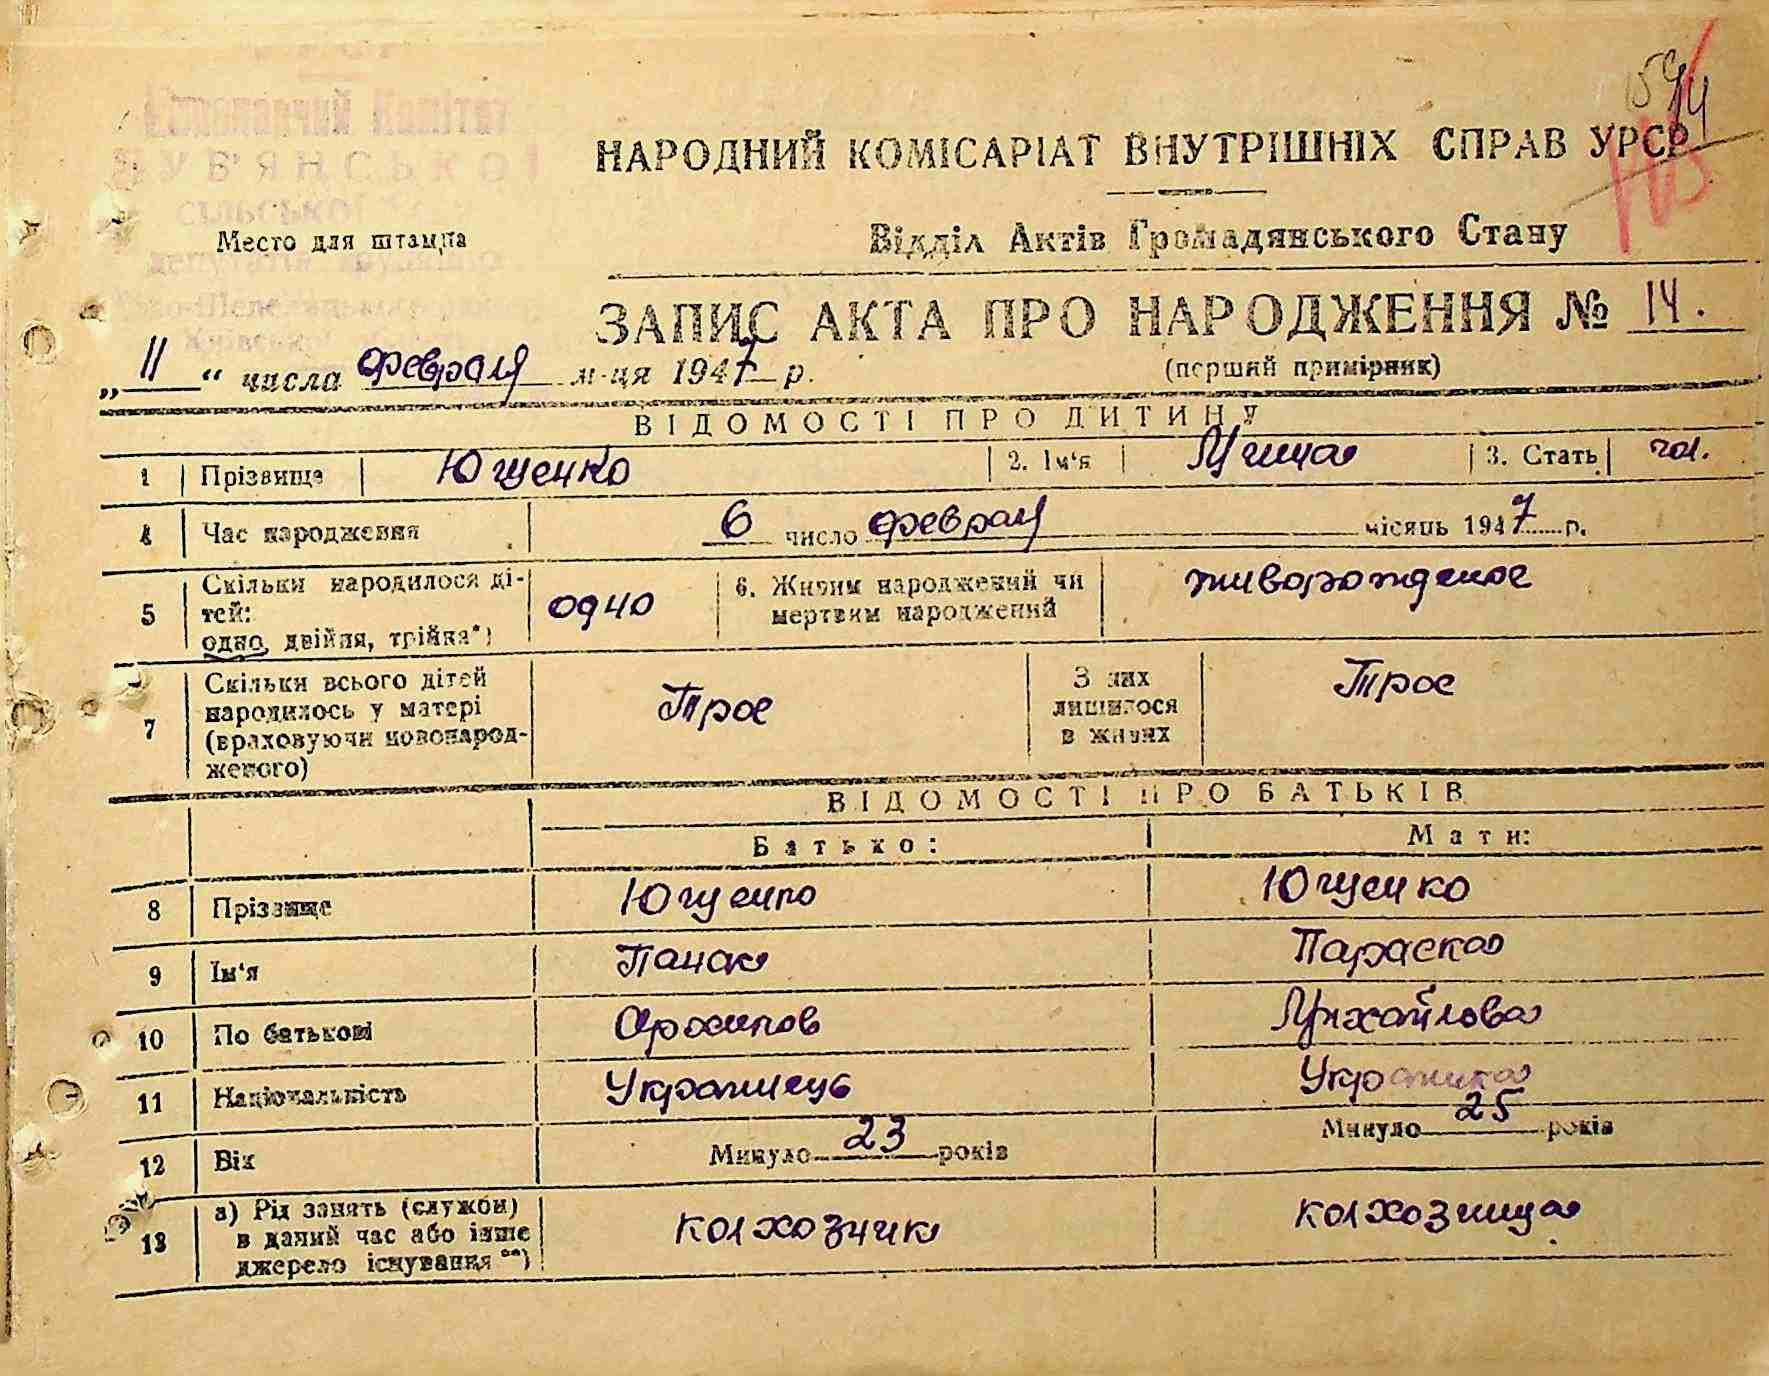 Виконавчий Комітет
СІЛЬСЬКОЇ
Место для штампа
594
14
НАРОДНИЙ КОМІСАРІАТ ВНУТРІШНІХ СПРАВ УРСР
Відділ Актів Громадянського Стану
ЗАПИС АКТА ПРО НАРОДЖЕННЯ № 14.
(перший примірник)
„11“ числа февраля м-ця 1947 р.
ВІДОМОСТІ ПРО ДИТИНУ
1 Прізвище Ющенко 2. Ім'я Миша 3. Стать чол.
4 Час народження 6 число февраля місяць 1947 р.
5 Скільки народилося ді-
тей:
одно, двійня, трійня*)
одно
6. Живим народжений чи
мертвим народжений
живорожденое
7 Скільки всього дітей
народилось у матері
(враховуючи новонарод-
женого)
Трое
З них
лишилося
в живих
Трое
ВІДОМОСТІ ПРО БАТЬКІВ
Батько: Мати:
8 Прізвище Ющенко Ющенко
9 Ім'я Панас Параска
10 По батькові Архипов Михайлова
11 Національність Українець Українка
12 Вік Минуло 23 років Минуло 25 років
13 а) Рід занять (служби)
в даний час або інше
джерело існування**)
колхозник колхозница